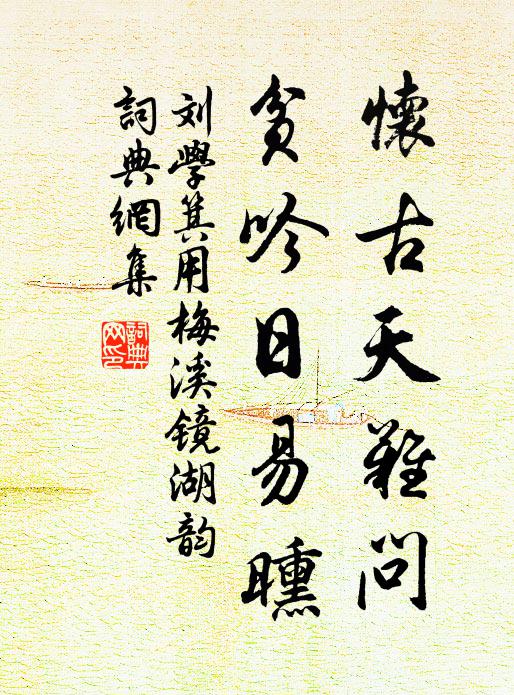 懷古天難問
貧吟日易曛
刘學箕用梅溪镜湖韵
詞典網集
詞典网印